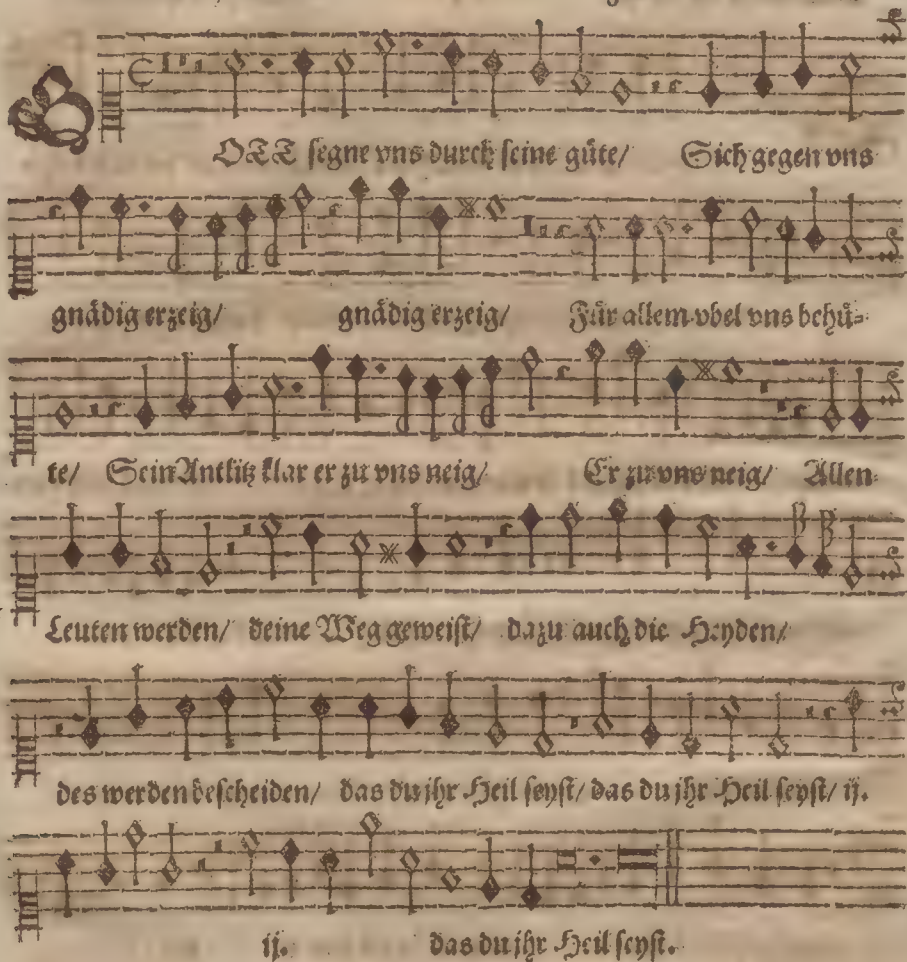 GOTT segne vns durch seine güte/ Sich gegen vns
gnädig erzeig/ gnädig erzeig/ Für allem vbel vns behü=
te/ Sein Antlitz klar er zu vns neig/ Er zu vns neig/ Allen
Leuten werden/ deine Weg geweist/ dazu auch die Heyden/
des werden bescheiden/ das du jhr Heil seyst/ das du jhr Heil seyst/ ij.
ij. das du jhr Heil seyst.